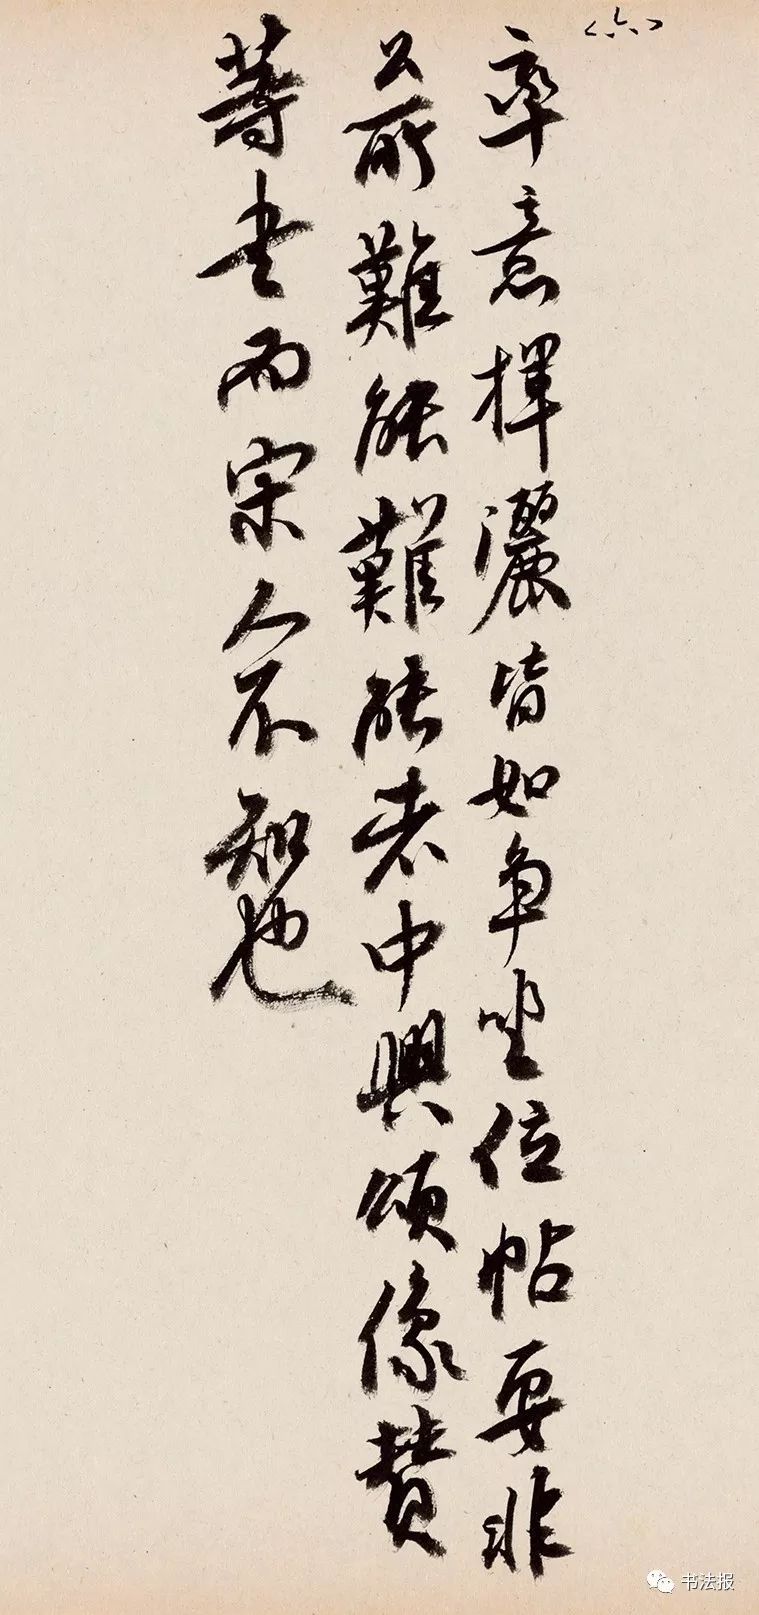 〈六〉
率意揮灑皆如争坐位帖要非
公所難能難能者中興頌像贊
等書而宋人不知也
书法报